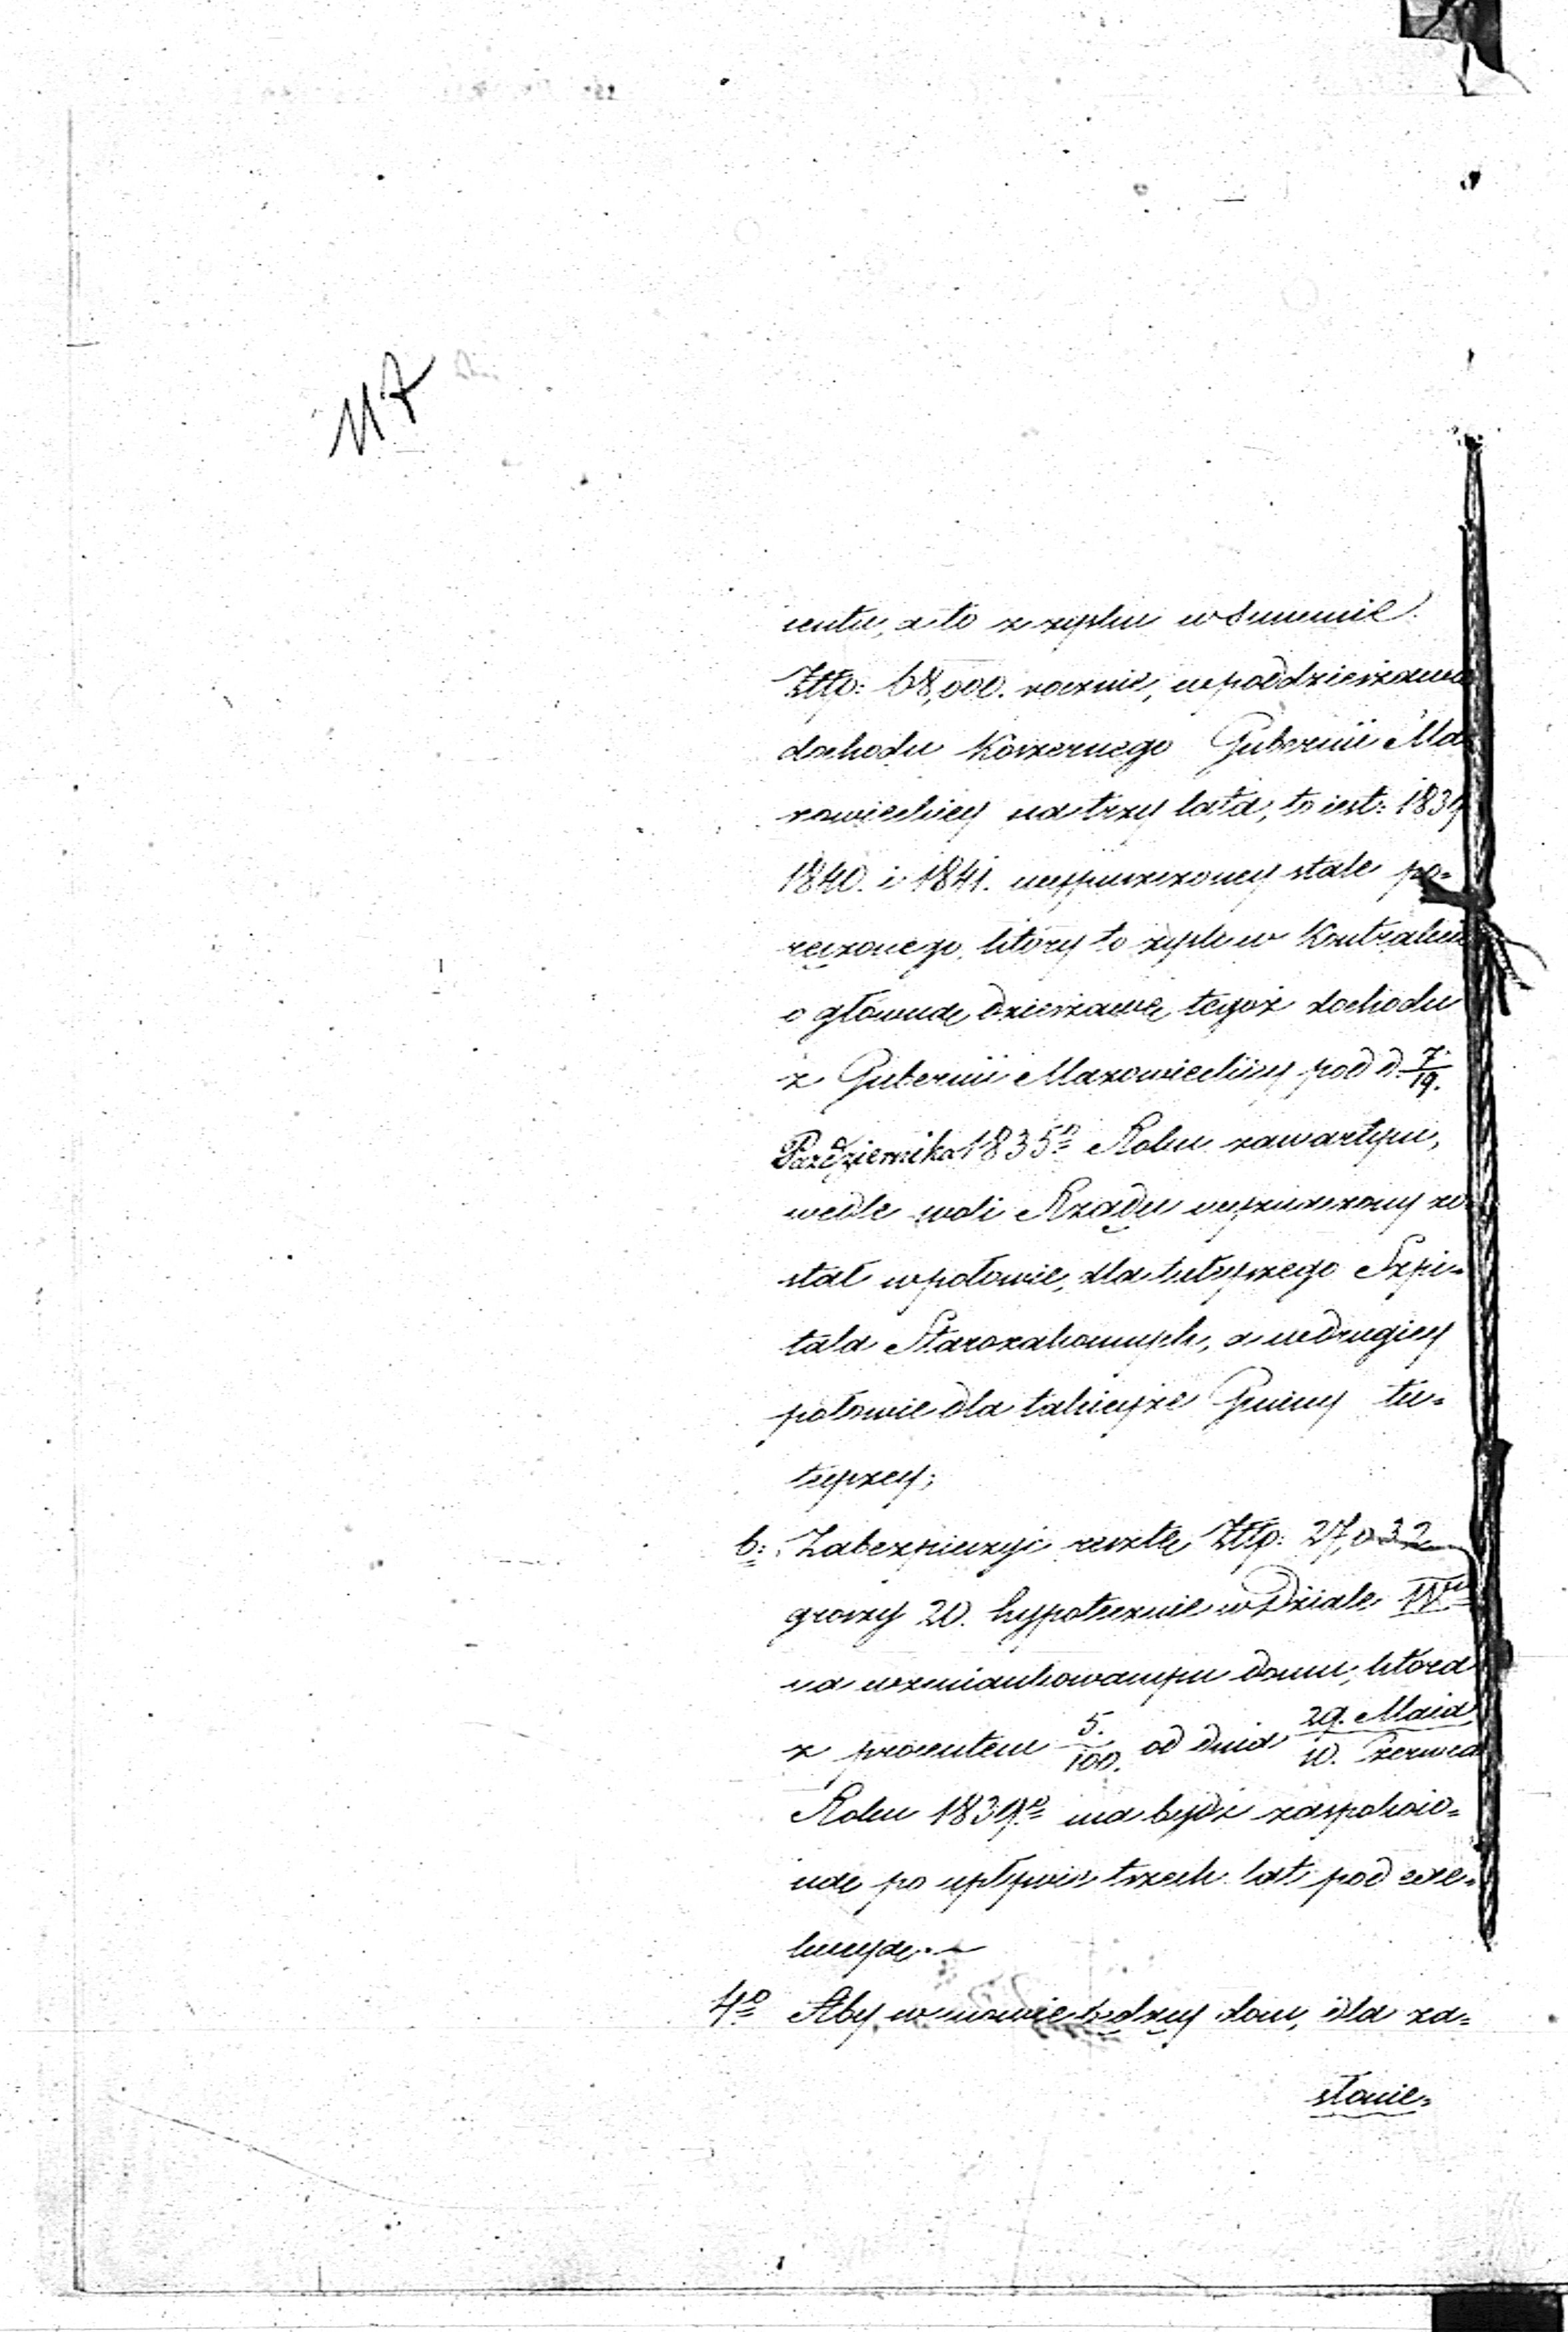 117
mentu, a to z zysku w Summie
Złtp: 68,000. rocznie, w poddzierżawie
dochodu Koszernego Gubernii Ma
zowieckiey na trzy lata, to iest: 1839
1840. i 1841. wypuszczoney stale po=
ręczonego, który to zysk w Kontrakcie
o główną dzierżawę tegoż dochodu
z Gubernii Mazowieckiey pod d. 7/19.
Października 1835º Roku zawartym,
wedle woli Rządu wypuszczony zo
stał w połowie, dla tutejszego Szpi=
tala Starozakonnych, a w drugiey
połowie dla takieyże Gminy tu=
teyszey;
b: Zabezpieczyć resztę Złtp: 27,032
groszy 20. hypotecznie w Dziale IVm
na wzmiankowanym domu, która
z procentem 5./100. od dnia 29. Maia/10. Czerwca
Roku 1839º ma bydź zaspokoio=
ną po upływie trzech lat pod exe=
kucyą.
4º Aby w mowie będący dom, dla za=
stanie=